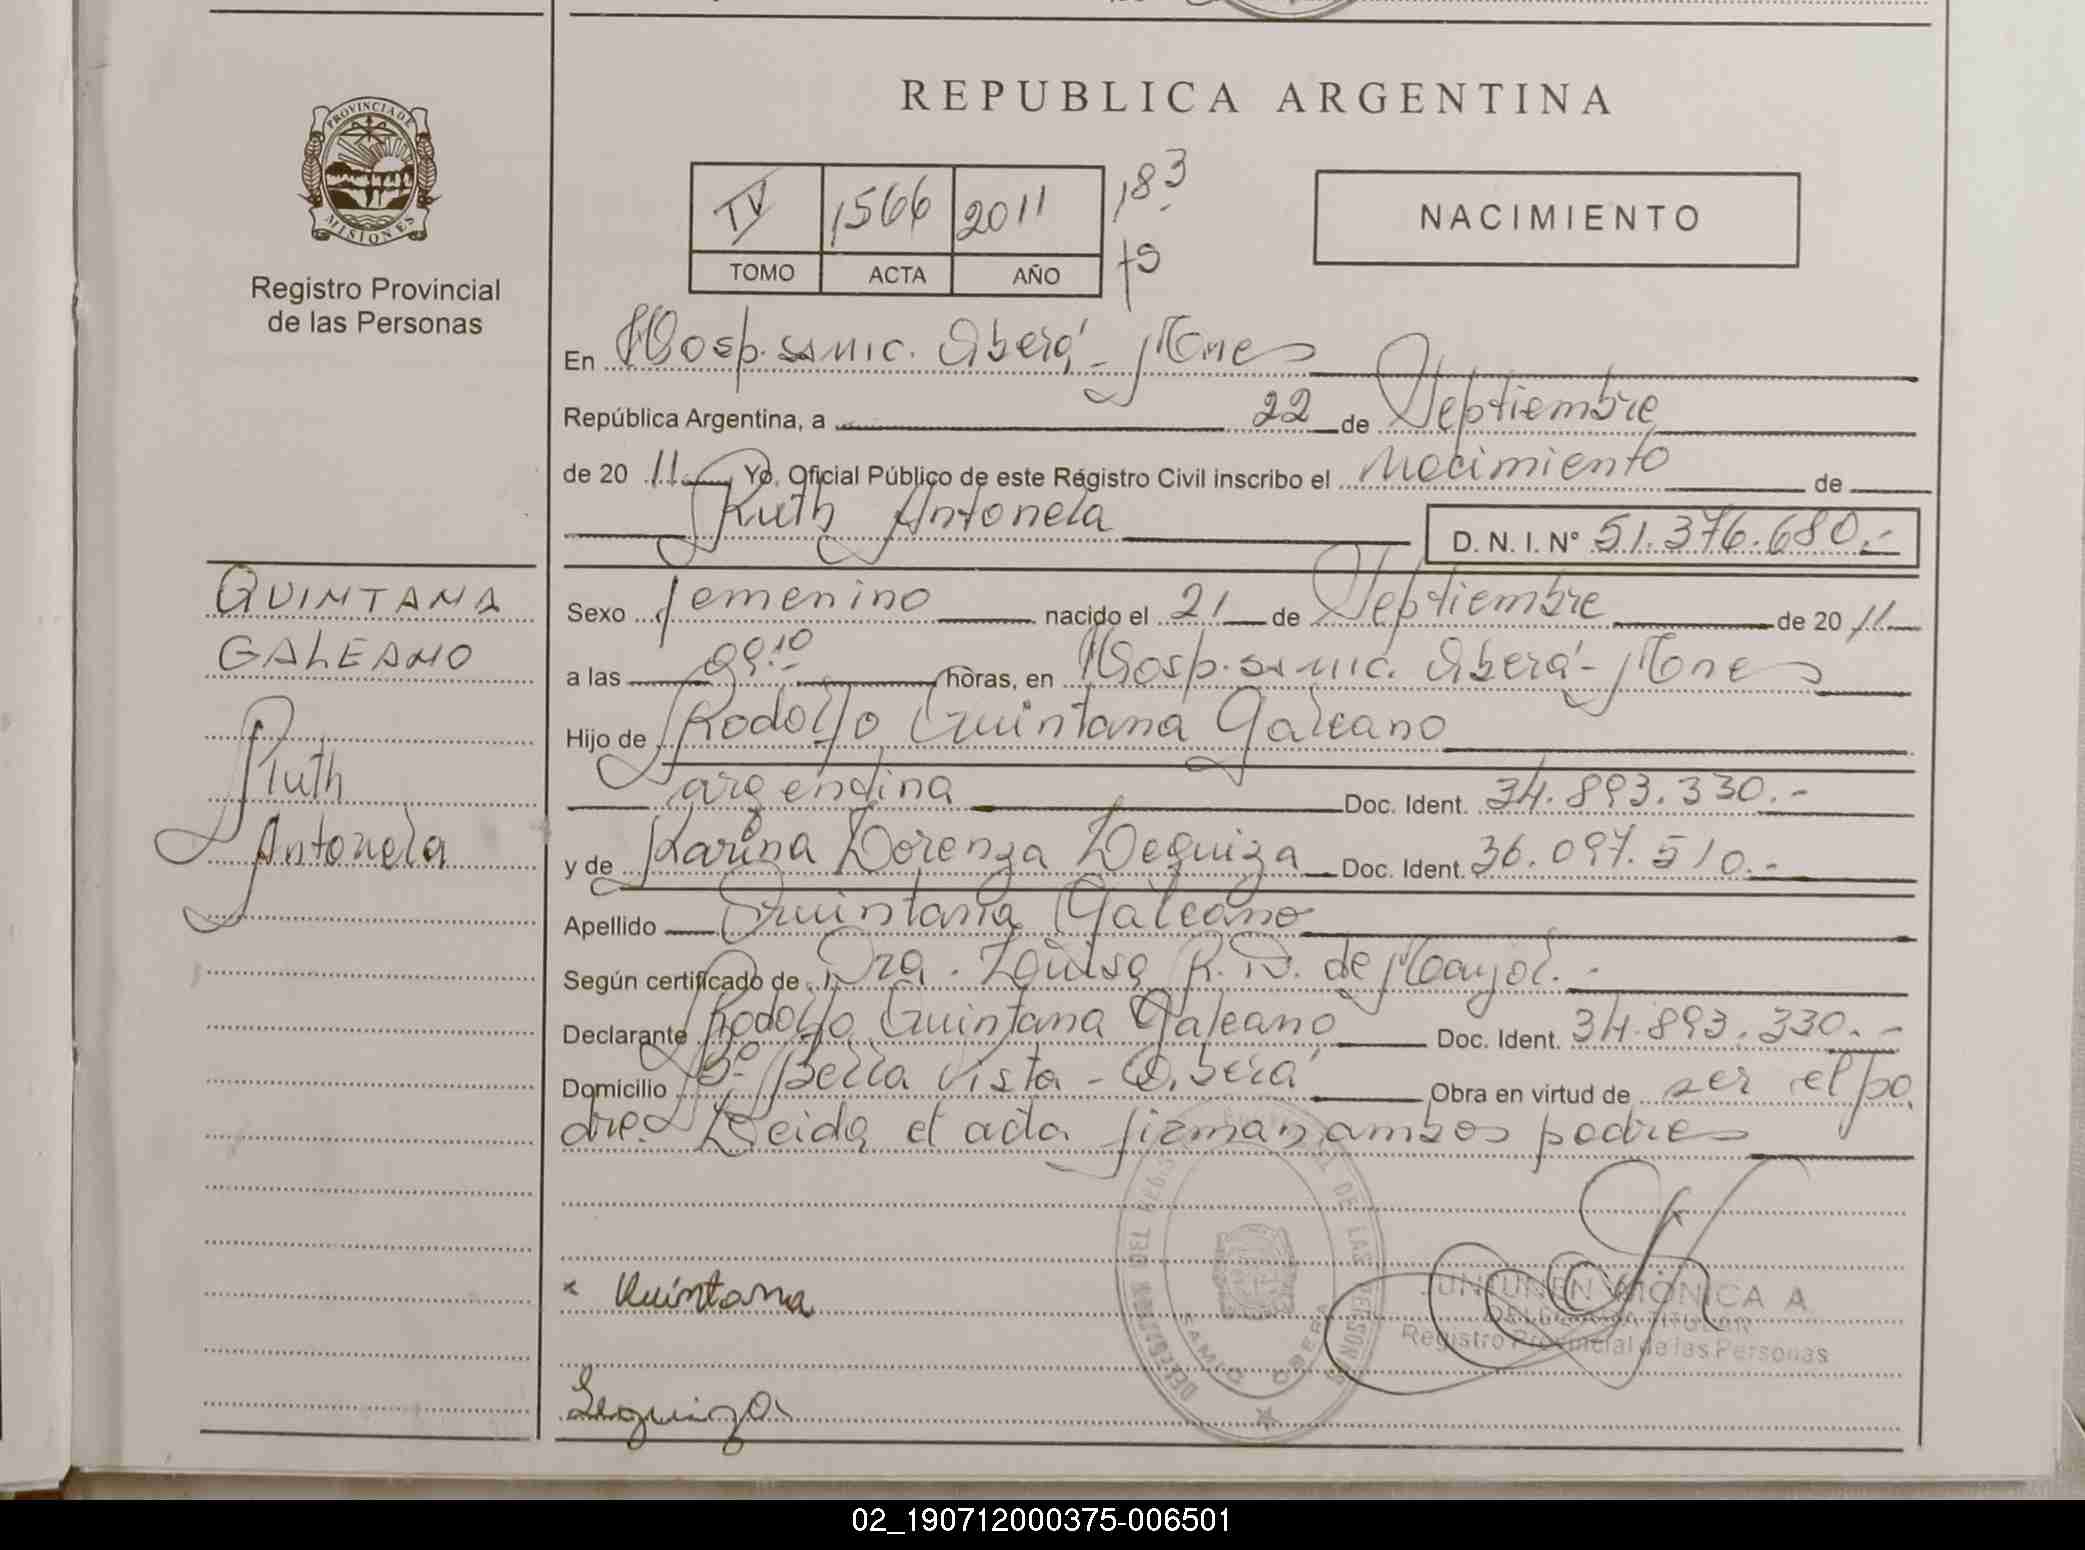 REPUBLICA ARGENTINA
PROVINCIA DE MISIONES
Registro Provincial
de las Personas
IV 1566 2011 183
TOMO ACTA AÑO
NACIMIENTO
En Hosp. SAMIC. Oberá - Mones
República Argentina, a 22 de Septiembre
de 20 11 Yo, Oficial Público de este Registro Civil inscribo el Nacimiento de
Ruth Antonela
D. N. I. N° 51.376.680.-
QUINTANA
GALEANO
Ruth
Antonela
Sexo femenino nacido el 21 de Septiembre de 20 11
a las 09.10 horas, en Hosp. SAMIC. Oberá - Mones
Hijo de Rodolfo Quintana Galeano
argentina Doc. Ident. 34.893.330.-
y de Karina Lorenza Leguiza Doc. Ident. 36.097.510.-
Apellido Quintana Galeano
Según certificado de Dra. R. D. de
Declarante Rodolfo Quintana Galeano Doc. Ident. 34.893.330.-
Domicilio B° Bella Vista - Oberá Obra en virtud de ser el pa
dre. Leida el acta firman ambos padres
x Quintana
Leguiza
MÓNICA A.
DELEGADA TITULAR
Registro Provincial de las Personas
SAMIC OBERA
02_190712000375-006501